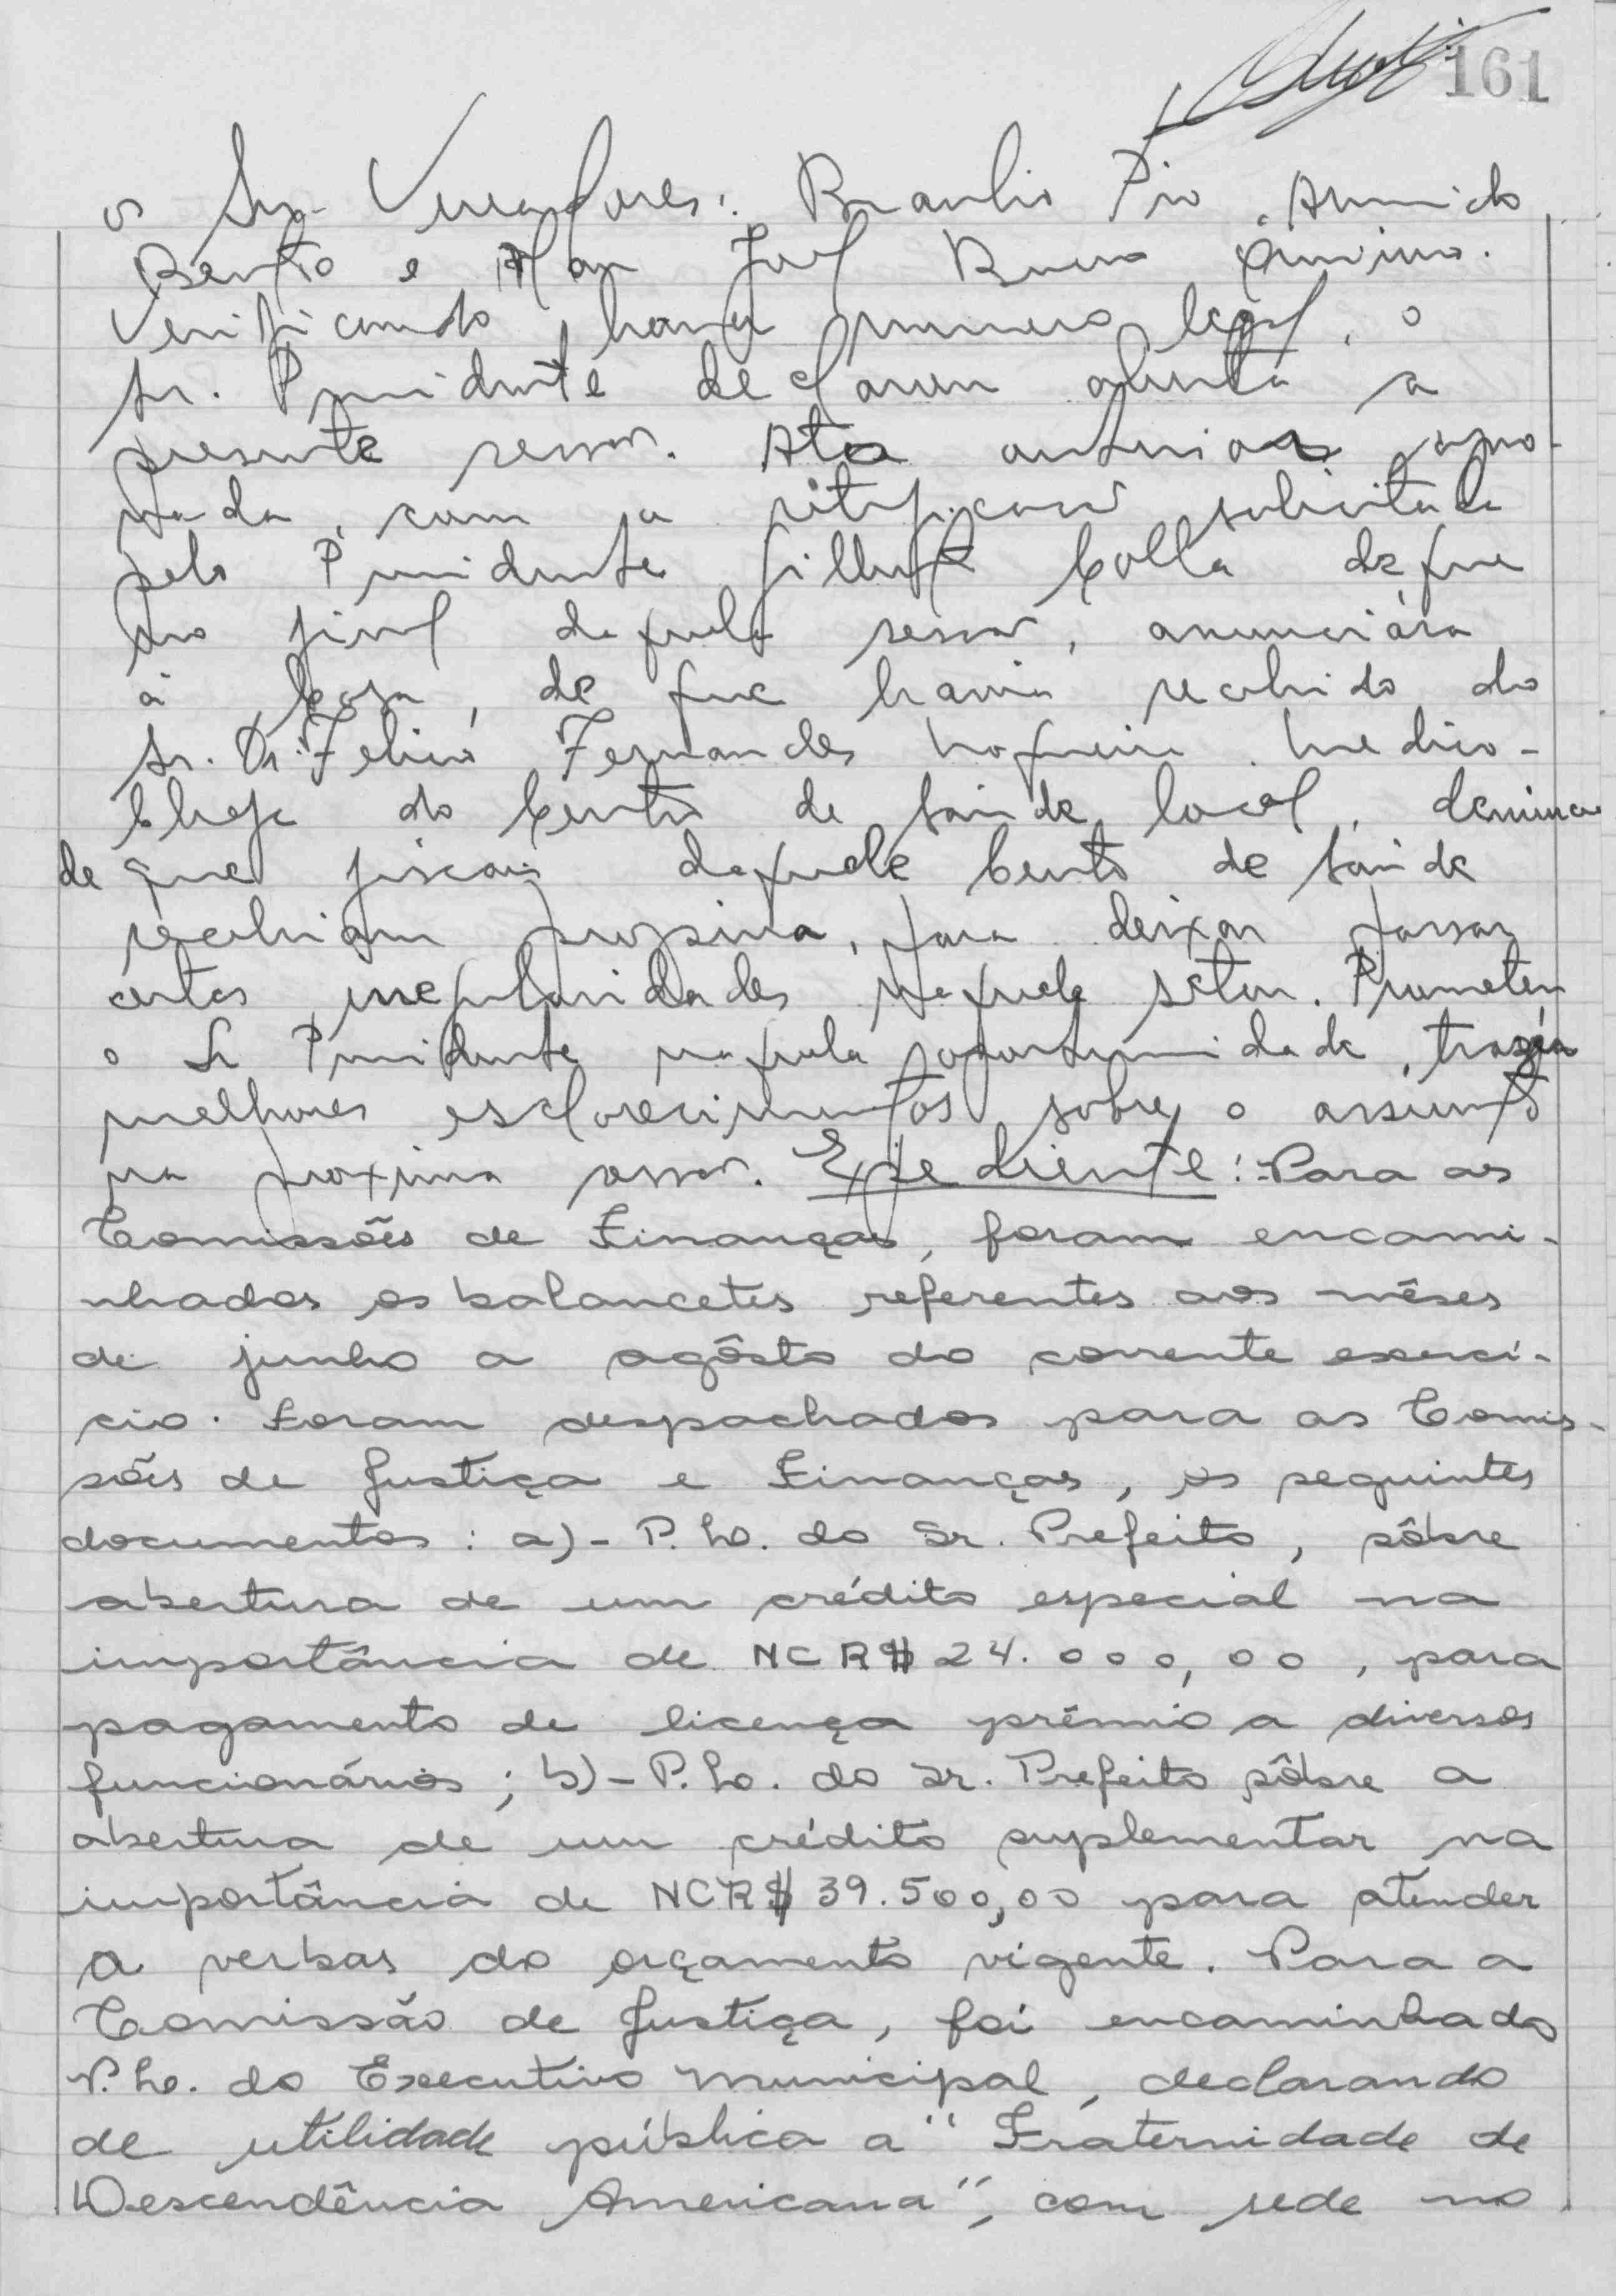 161
os Srs. Vereadores: Braulio Pio, Armindo
Bento e Alan José Bueno
Verificando haver numero legal, o
Sr. Presidente declarou aberta a
presente sessão. Ata anterior apro-
vada, com a retificação solicitada
pelo Presidente Gilberto Colla de que
no final daquela sessão, anunciára
à Casa, de que havia recebido do
Sr. Dr. Felicio Fernandes Nogueira, Medico-
Chefe do Centro de Saúde local, denuncia
de que fiscais daquele Centro de Saúde
recebiam propina, para deixar passar
certas irregularidades naquele setor. Prometeu
o Sr Presidente naquela oportunidade, trazer
melhores esclarecimentos sobre o assunto
na proxima sessão. Expediente: Para as
Comissões de Finanças, foram encami-
nhados os balancetes referentes aos mêses
de junho a agôsto do corrente exercí-
cio. Foram despachados para as Comis-
sões de Justiça e Finanças, os seguintes
documentos: a)- P. Lo. do Sr. Prefeito, sôbre
abertura de um crédito especial na
importância de NCR$ 24.000,00, para
pagamento de licença prêmio a diversos
funcionários; b)- P. Lo. do Sr. Prefeito sôbre a
abertura de um crédito suplementar na
importância de NCR$ 39.500,00 para atender
a verbas do orçamento vigente. Para a
Comissão de Justiça, foi encaminhado
P. Lo. do Executivo Municipal, declarando
de utilidade pública a "Fraternidade de
Descendência Americana", com sede no